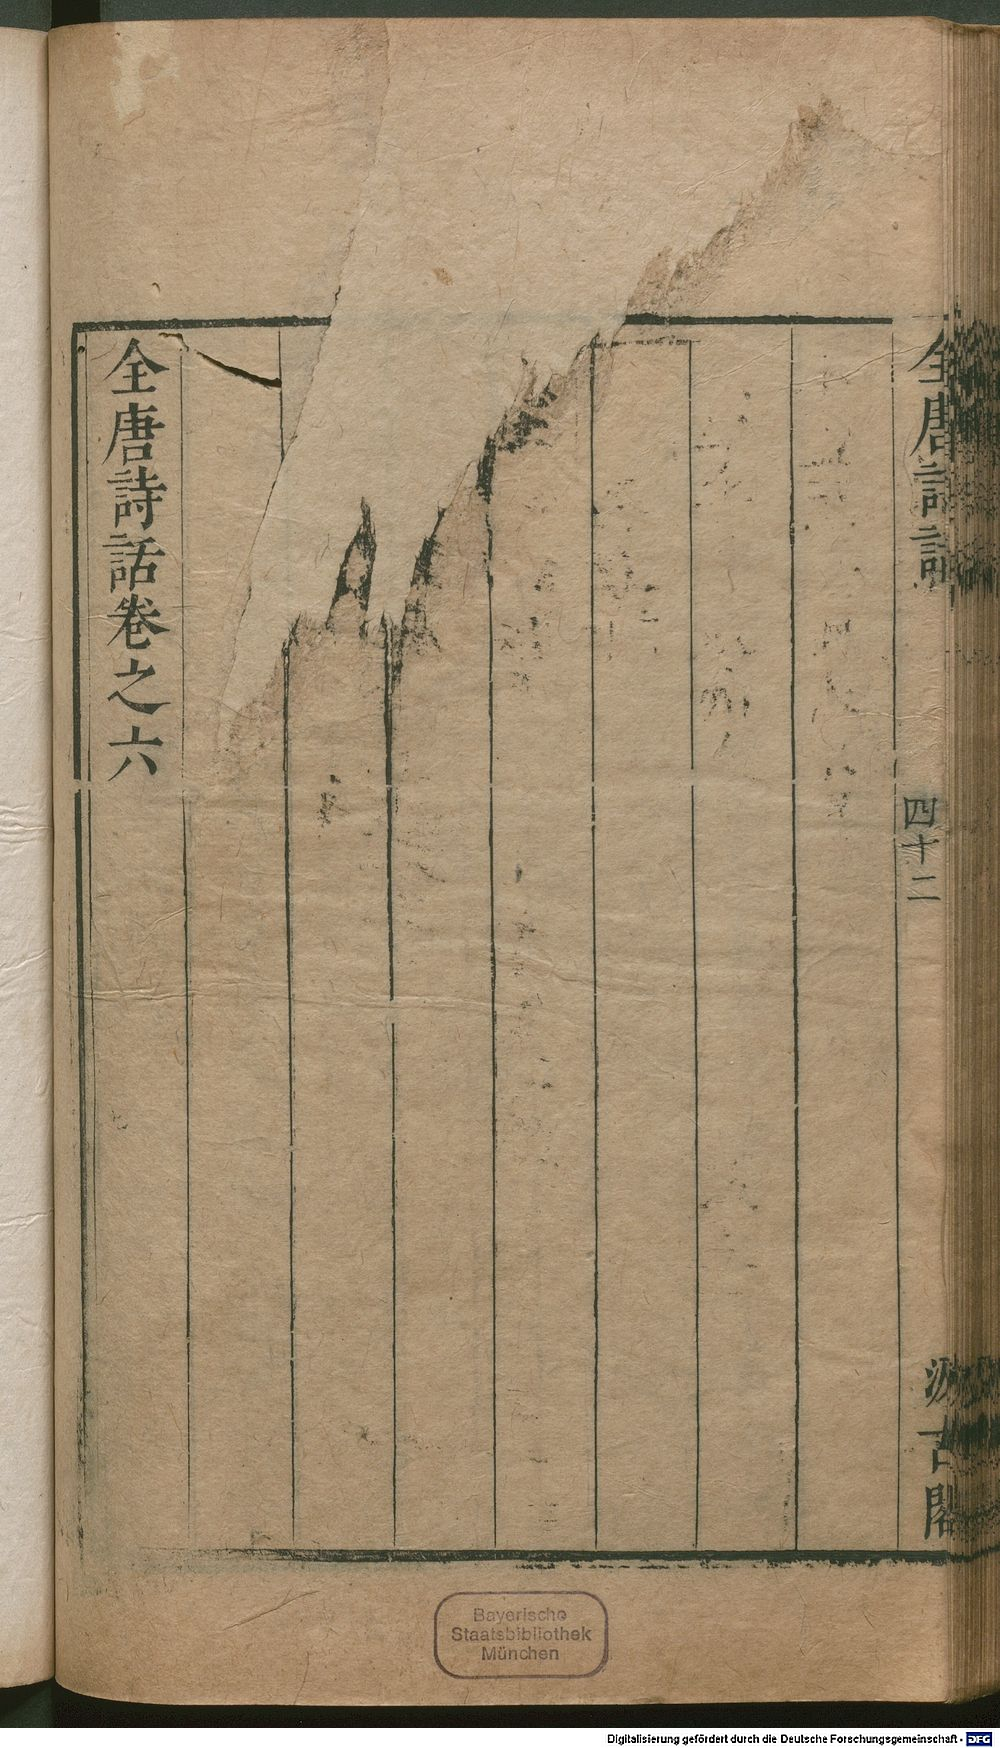 全唐詩話
四十二
汲古閣
全唐詩話卷之六
Bayerische
Staatsbibliothek
München
Digitalisierung gefördert durch die Deutsche Forschungsgemeinschaft - DFG